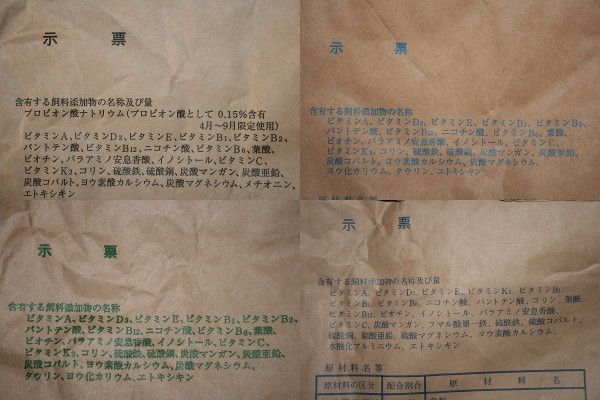 示 票
含有する飼料添加物の名称及び量
プロピオン酸ナトリウム(プロピオン酸として 0.15%含有
4月〜9月限定使用)
ビタミンA、ビタミンD₃、ビタミンE、ビタミンB₁、ビタミンB₂、
パントテン酸、ビタミンB₁₂、ニコチン酸、ビタミンB₆、葉酸、
ビオチン、パラアミノ安息香酸、イノシトール、ビタミンC、
ビタミンK₃、コリン、硫酸鉄、硫酸銅、炭酸マンガン、炭酸亜鉛、
炭酸コバルト、ヨウ素酸カルシウム、炭酸マグネシウム、メチオニン、
エトキシキン
示 票
含有する飼料添加物の名称及び量
ビタミンA、ビタミンD₃、ビタミンE、ビタミンB₁、ビタミンB₂、
パントテン酸、ビタミンB₁₂、ニコチン酸、ビタミンB₆、葉酸、
ビオチン、パラアミノ安息香酸、イノシトール、ビタミンC、
ビタミンK₃、コリン、硫酸鉄、硫酸銅、炭酸マンガン、炭酸亜鉛、
炭酸コバルト、ヨウ素酸カルシウム、炭酸マグネシウム、
ヨウ化カリウム、タウリン、エトキシキン
示 票
含有する飼料添加物の名称
ビタミンA、ビタミンD₃、ビタミンE、ビタミンB₁、ビタミンB₂、
パントテン酸、ビタミンB₁₂、ニコチン酸、ビタミンB₆、葉酸、
ビオチン、パラアミノ安息香酸、イノシトール、ビタミンC、
ビタミンK₃、コリン、硫酸鉄、硫酸銅、炭酸マンガン、炭酸亜鉛、
炭酸コバルト、ヨウ素酸カルシウム、炭酸マグネシウム、
タウリン、ヨウ化カリウム、エトキシキン
示 票
含有する飼料添加物の名称及び量
ビタミンA、ビタミンD₃、ビタミンE、ビタミンK₃、ビタミンB₁、
ビタミンB₂、ビタミンB₆、ニコチン酸、パントテン酸、コリン、葉酸、
ビタミンB₁₂、ビオチン、イノシトール、パラアミノ安息香酸、
ビタミンC、炭酸マンガン、フマル酸第一鉄、硫酸鉄、硫酸コバルト、
硫酸銅、硫酸亜鉛、硫酸マグネシウム、ヨウ素酸カルシウム、
水酸化アルミニウム、エトキシキン
原材料名等
原材料の区分 配合割合 原材料名